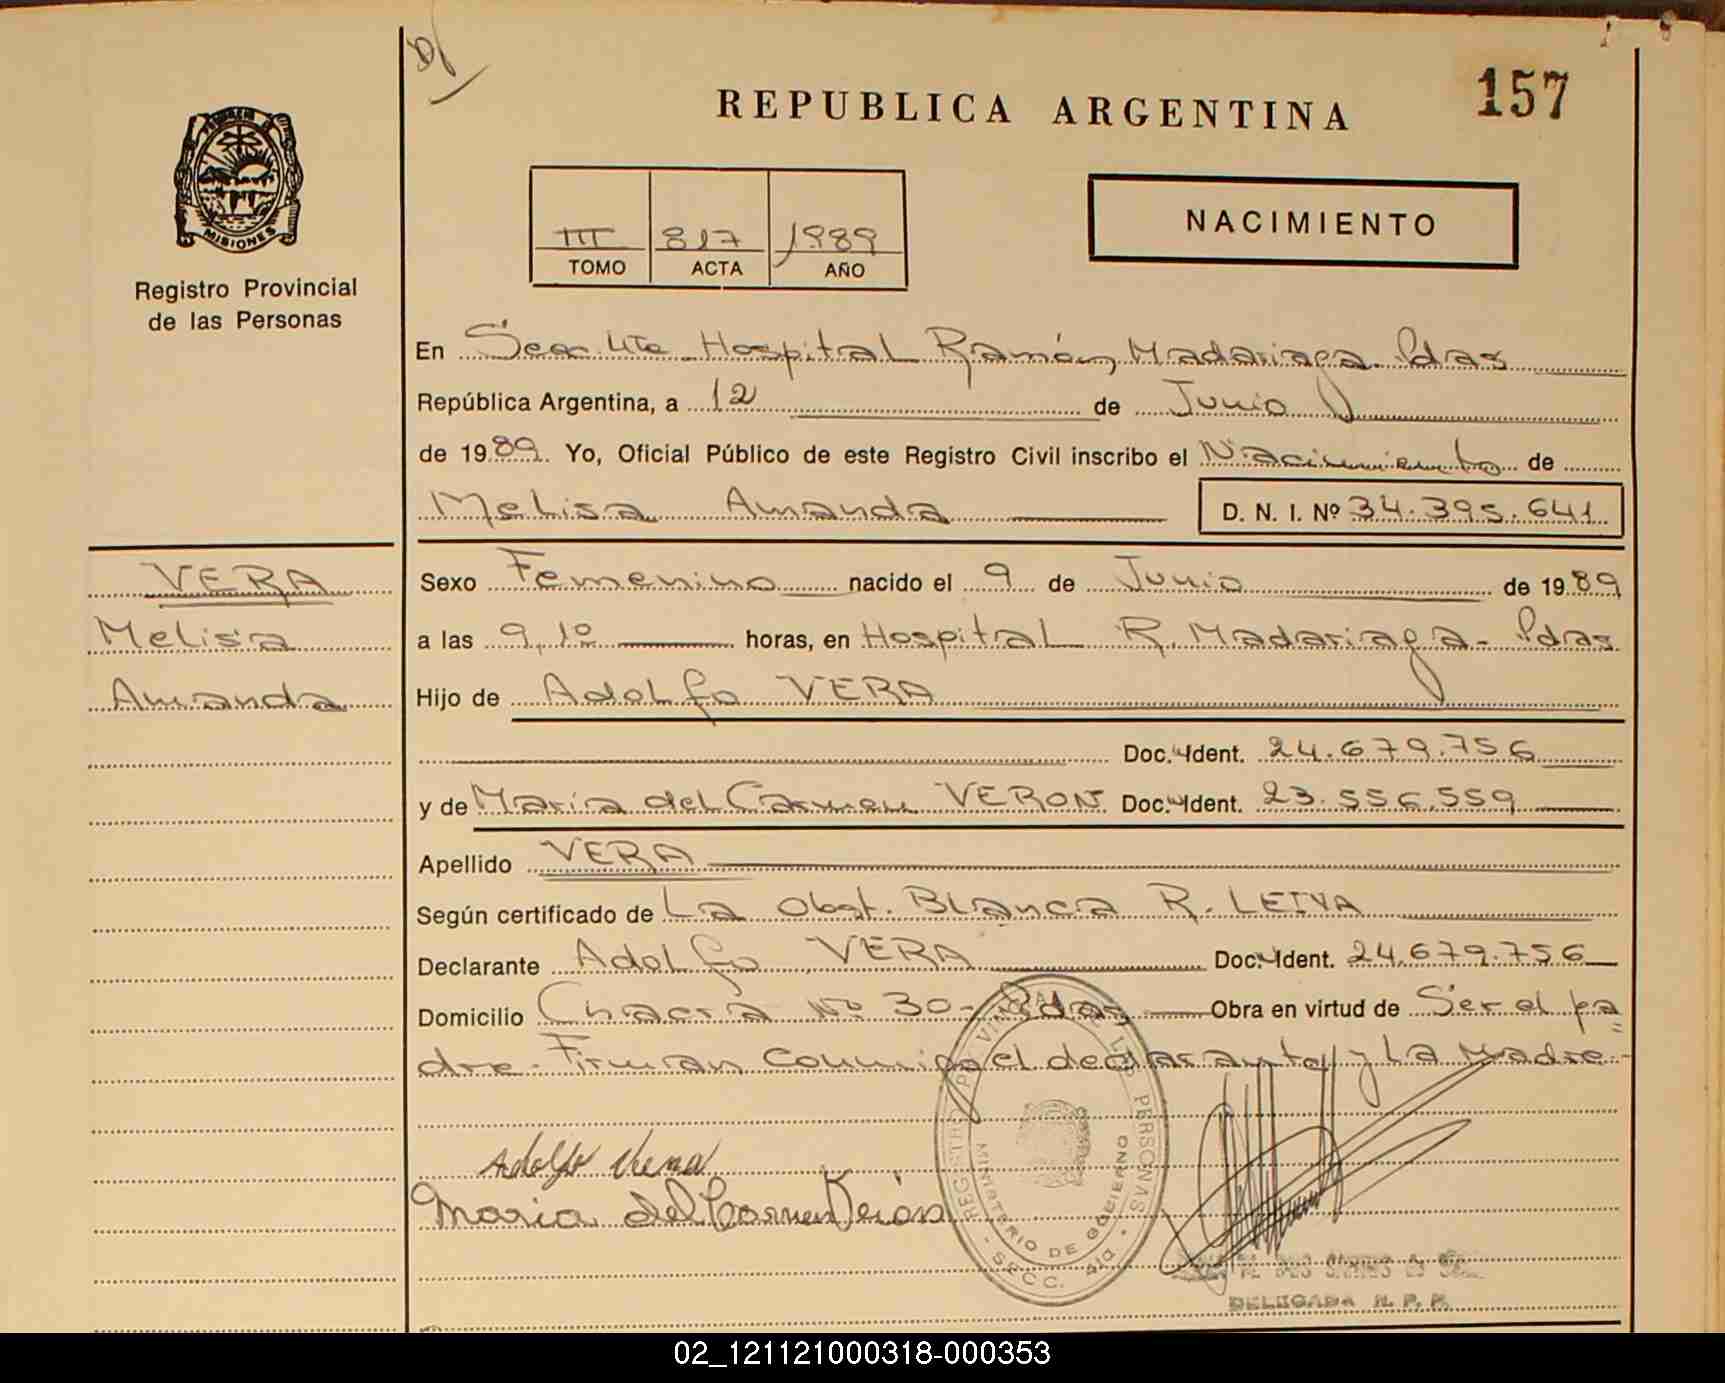 157
REPUBLICA ARGENTINA
MISIONES
Registro Provincial
de las Personas
NACIMIENTO
III 817 1989
TOMO ACTA AÑO
En Secc 4ta Hospital Ramón Madariaga - Pdas
República Argentina, a 12 de Junio
de 1989. Yo, Oficial Público de este Registro Civil inscribo el Nacimiento de
Melisa Amanda D. N. I. Nº 34.395.641
VERA
Melisa
Amanda
Sexo Femenino nacido el 9 de Junio de 1989
a las 9,10 horas, en Hospital R. Madariaga - Pdas
Hijo de Adolfo VERA
Doc. Ident. 24.679.756
y de María del Carmen VERON Doc. Ident. 23.556.559
Apellido VERA
Según certificado de La Obst. Blanca R. LEIVA
Declarante Adolfo VERA Doc. Ident. 24.679.756
Domicilio Chacra Nº 30 - Pdas Obra en virtud de Ser el pa=
dre - Firman conmigo el declarante y La Madre -
Adolfo Vera
Maria del Carmen Verón
REGISTRO PROVINCIAL DE LAS PERSONAS
MINISTERIO DE GOBIERNO
SECC. 4ta
DELEGADA R. P. P.
02_121121000318-000353